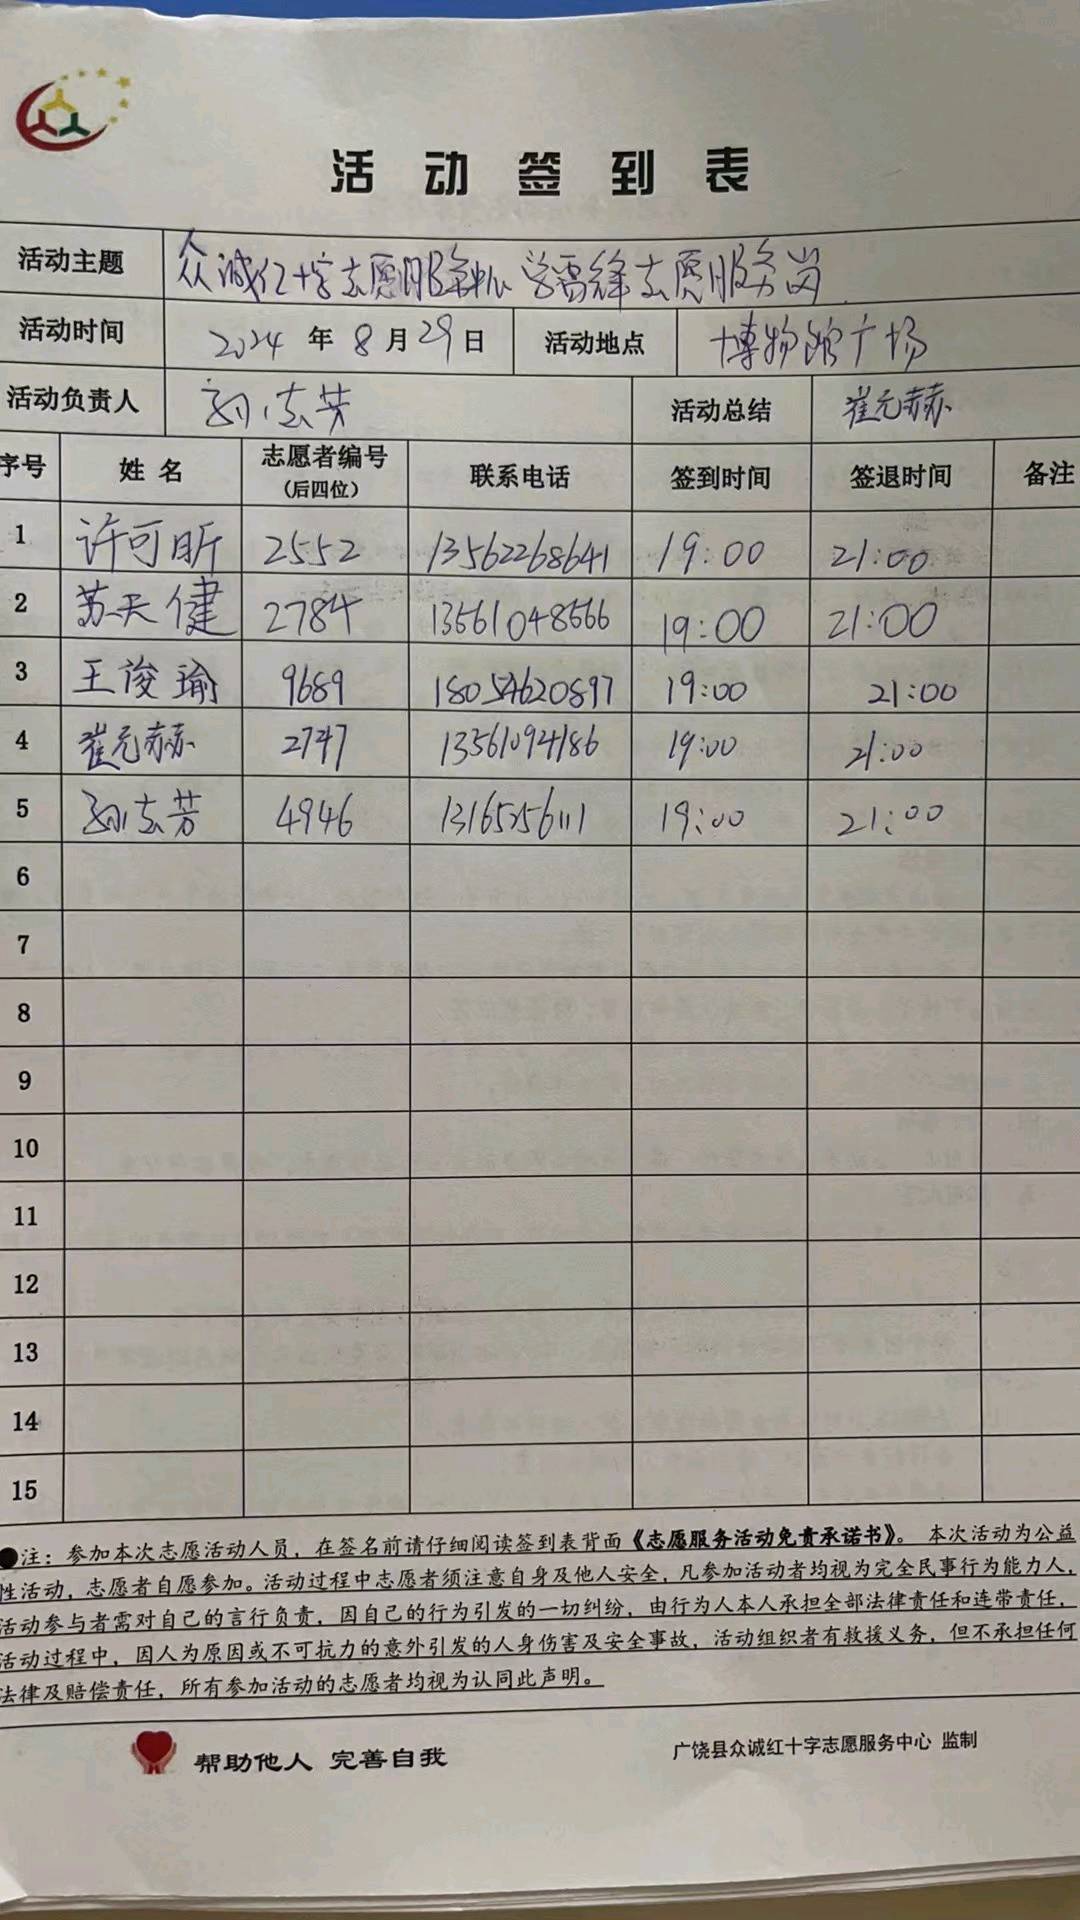 活动签到表
活动主题 众诚红十字志愿服务中心 学雷锋志愿服务岗
活动时间 2024 年 8 月 29 日 活动地点 博物馆广场
活动负责人 志芳 活动总结 崔元赫
序号 姓名 志愿者编号 (后四位) 联系电话 签到时间 签退时间 备注
1 许可昕 2552 13562268641 19:00 21:00
2 苏天健 2784 13561048566 19:00 21:00
3 王俊瑜 9689 18054620897 19:00 21:00
4 崔元赫 2747 13561094186 19:00 21:00
5 志芳 4946 13165256111 19:00 21:00
6
7
8
9
10
11
12
13
14
15
●注：参加本次志愿活动人员，在签名前请仔细阅读签到表背面《志愿服务活动免责承诺书》。本次活动为公益
性活动，志愿者自愿参加。活动过程中志愿者须注意自身及他人安全，凡参加活动者均视为完全民事行为能力人，
活动参与者需对自己的言行负责，因自己的行为引发的一切纠纷，由行为人本人承担全部法律责任和连带责任，
活动过程中，因人为原因或不可抗力的意外引发的人身伤害及安全事故，活动组织者有救援义务，但不承担任何
法律及赔偿责任，所有参加活动的志愿者均视为认同此声明。
帮助他人 完善自我
广饶县众诚红十字志愿服务中心 监制